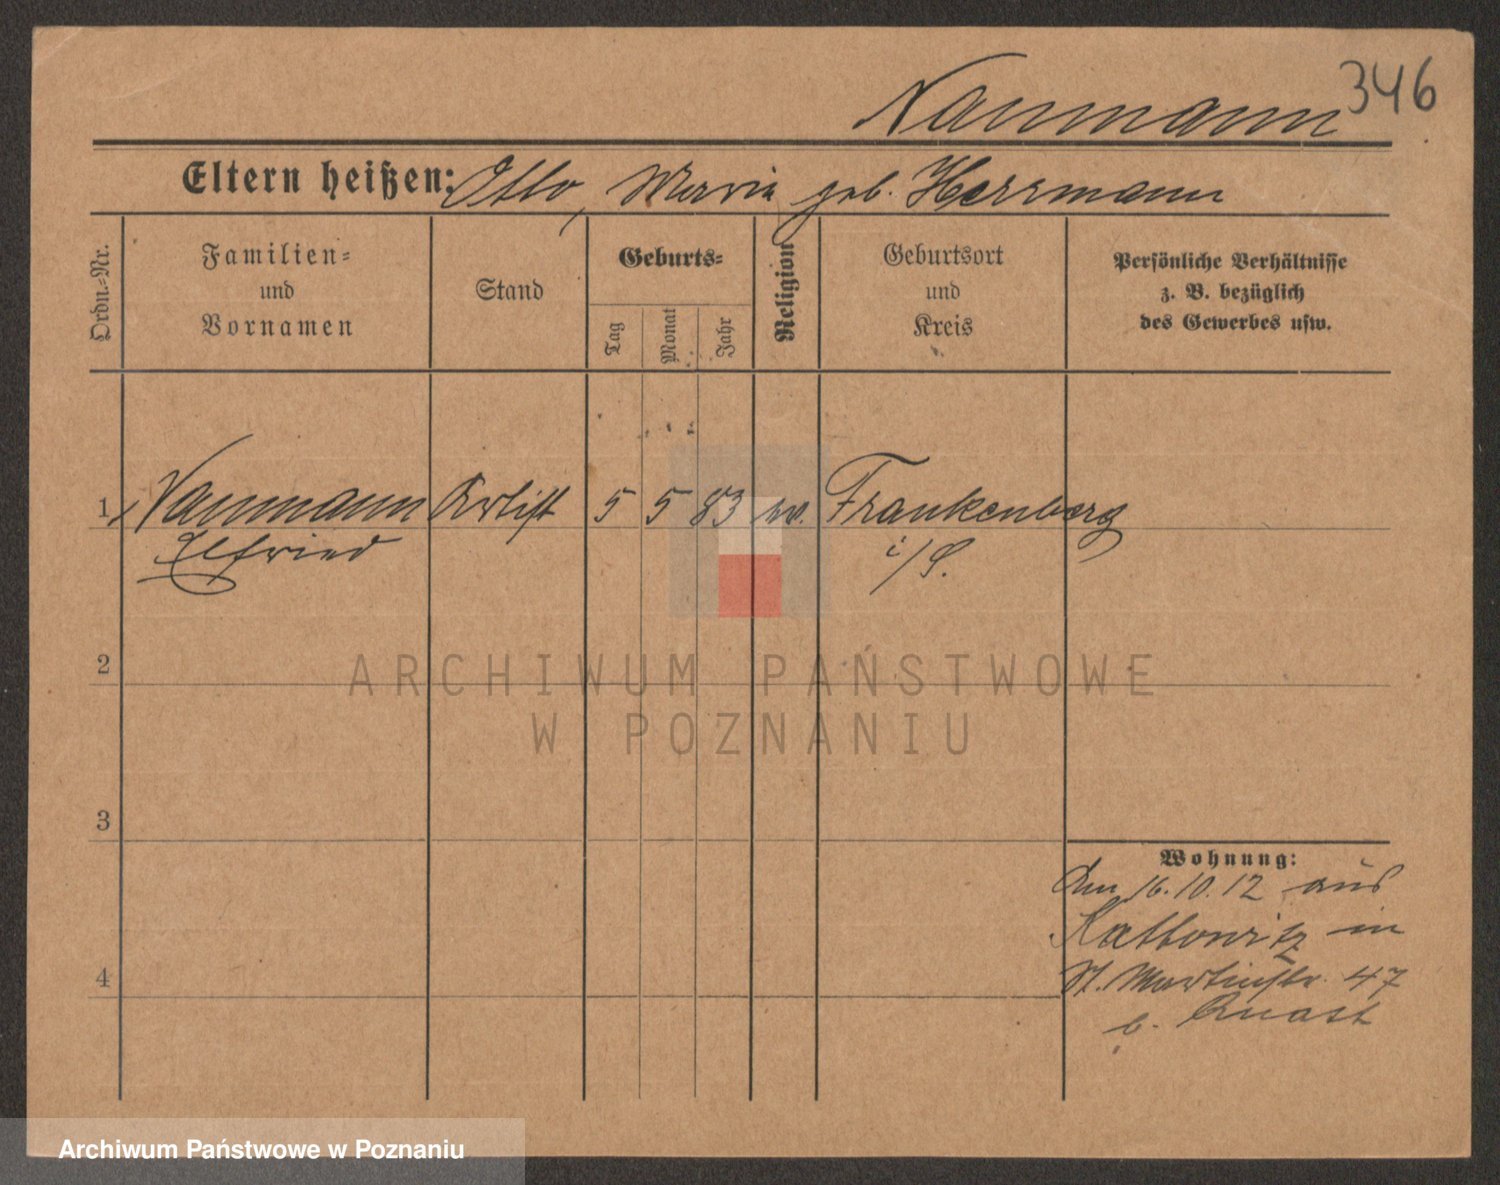 Naumann 346
Eltern heißen: Otto, Maria geb. Herrmann
Ordn.-Nr.
Familien-
und
Vornamen
Stand
Geburts-
Tag
Monat
Jahr
Religion
Geburtsort
und
Kreis
Persönliche Verhältnisse
z. B. bezüglich
des Gewerbes usw.
1 Naumann Artist 5 5 83 ev. Frankenberg
Elfried i/S.
2
3
4
Wohnung:
Am 16.10.12 aus
Kattowitz in
St. Martinstr. 47
b. Quast
ARCHIWUM PAŃSTWOWE
W POZNANIU
Archiwum Państwowe w Poznaniu